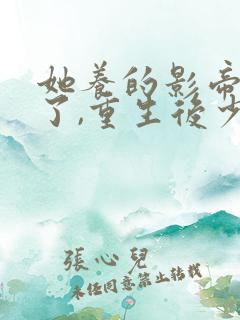 她养的影帝
了,重生後少
張心兒
未经同意禁止转载